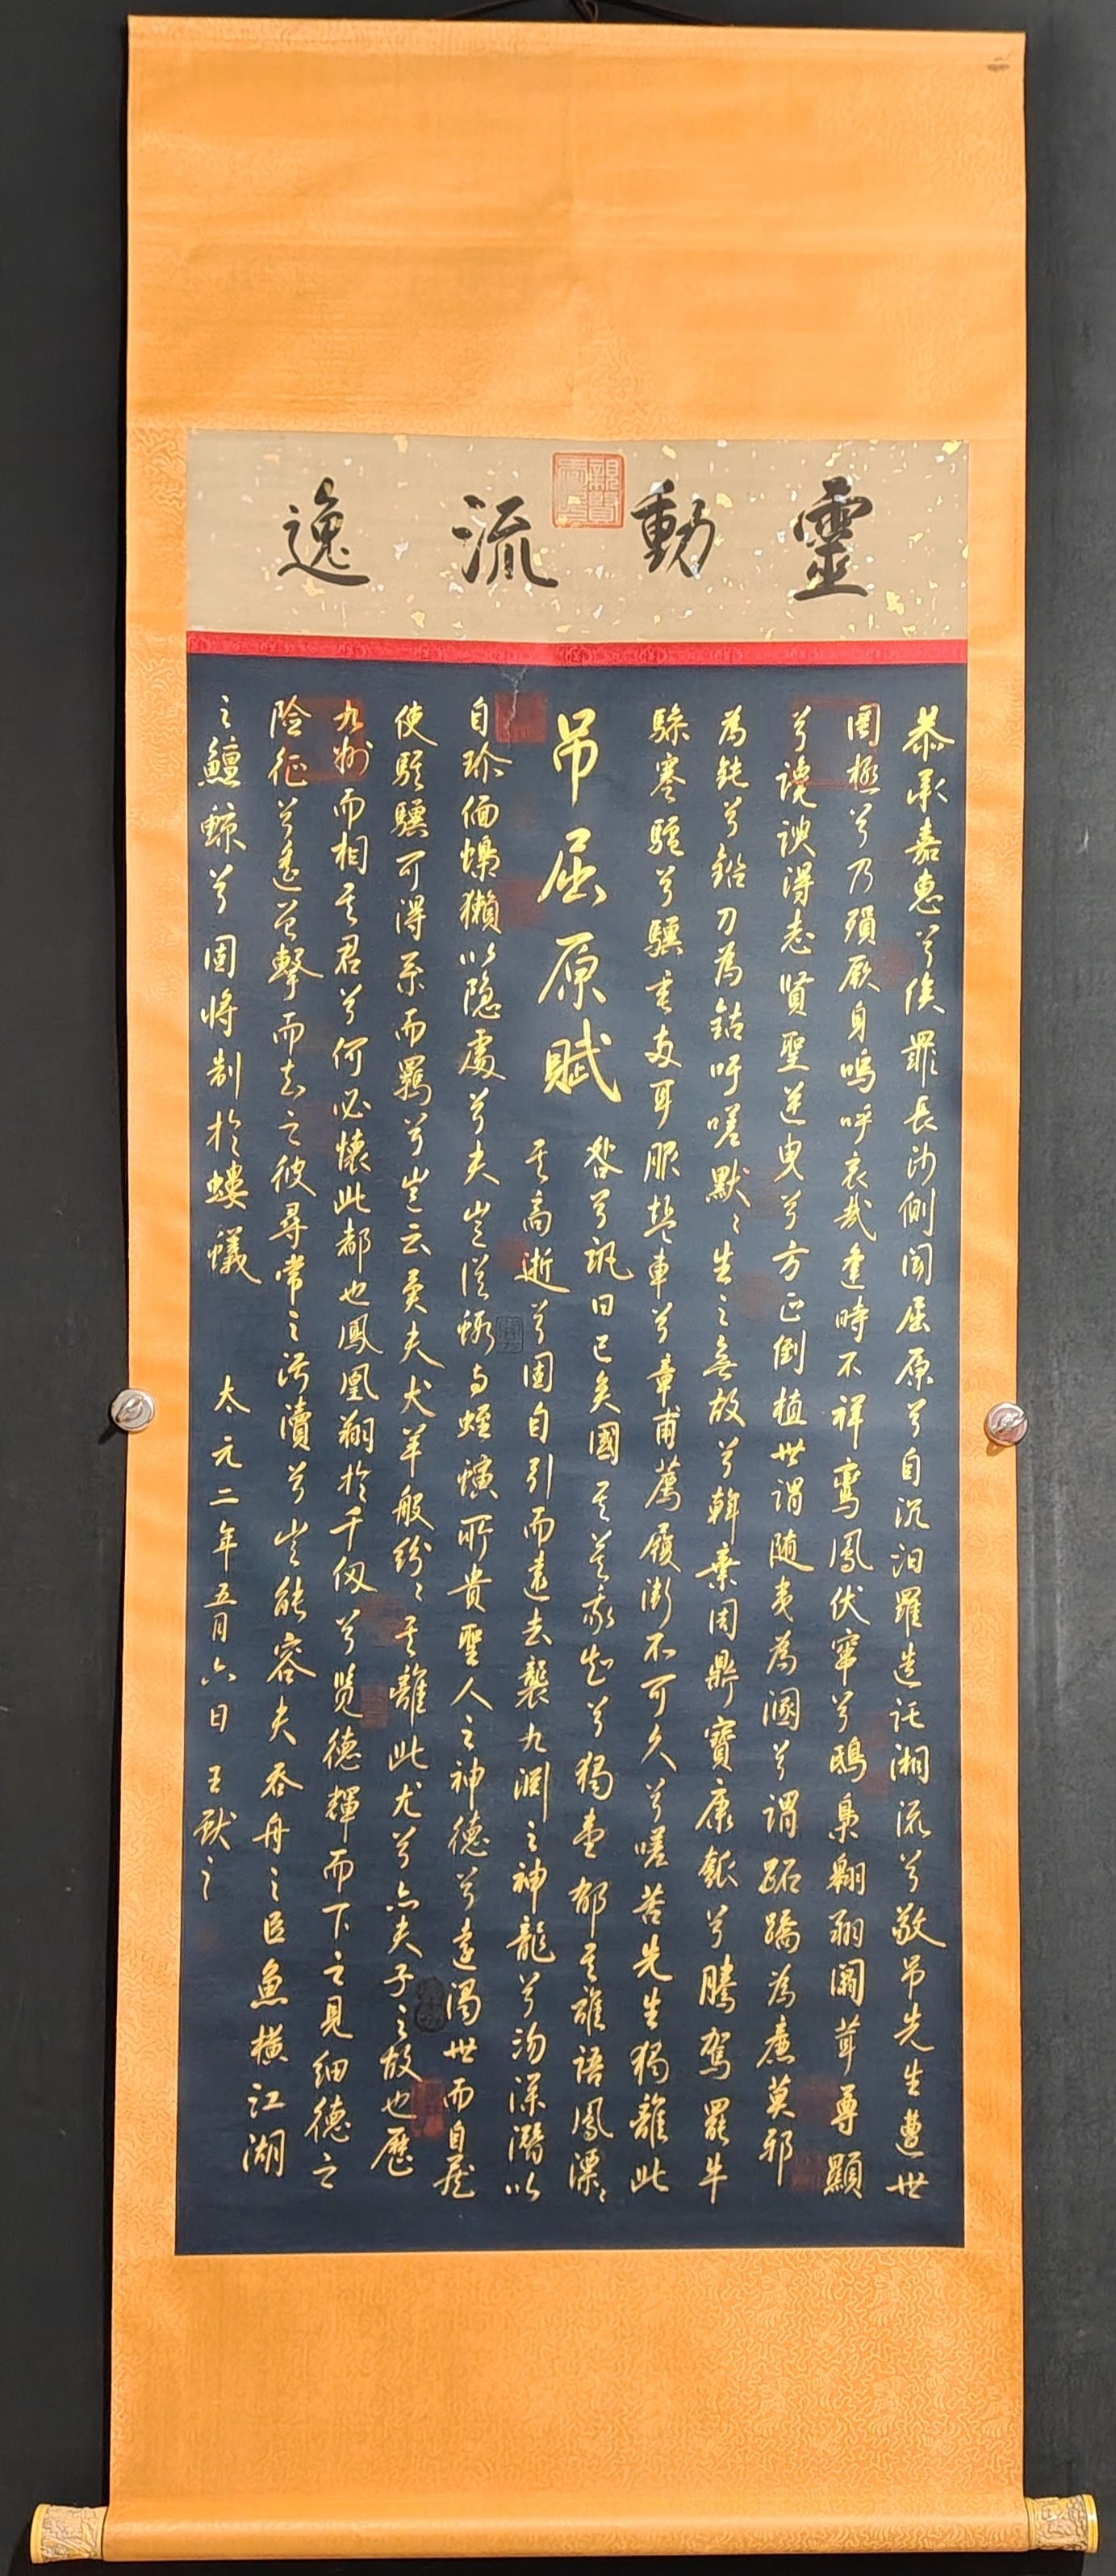 靈動流逸
恭承嘉惠兮俟罪長沙側聞屈原兮自沉汨羅造託湘流兮敬吊先生遭世
罔極兮乃殞厥身嗚呼哀哉逢時不祥鸞鳳伏竄兮鴟梟翱翔闒茸尊顯
兮讒諛得志賢聖逆曳兮方正倒植世謂随夷為溷兮謂跖蹻為廉莫邪
為鈍兮鉛刀為銛吁嗟默〻生之無故兮斡棄周鼎寶康瓠兮騰駕罷牛
驂蹇驢兮驥垂兩耳服鹽車兮章甫薦履漸不可久兮嗟苦先生獨離此
咎兮訊曰已矣國其莫我知兮獨壹郁其誰語鳳漂〻
吊屈原賦
其高逝兮固自引而遠去襲九淵之神龍兮沕深潛以
自珍偭蟂獺以隐處兮夫豈從蝦与蛭螾所貴聖人之神德兮遠濁世而自藏
使騏驥可得系而羈兮豈云異夫犬羊般紛〻其離此尤兮亦夫子之故也歷
九州而相其君兮何必懷此都也鳳凰翔於千仞兮覽德輝而下之見細德之
险征兮遙曾擊而去之彼尋常之污瀆兮豈能容夫吞舟之巨魚橫江湖
之鱣鯨兮固將制於螻蟻 太元二年五月六日 王獻之